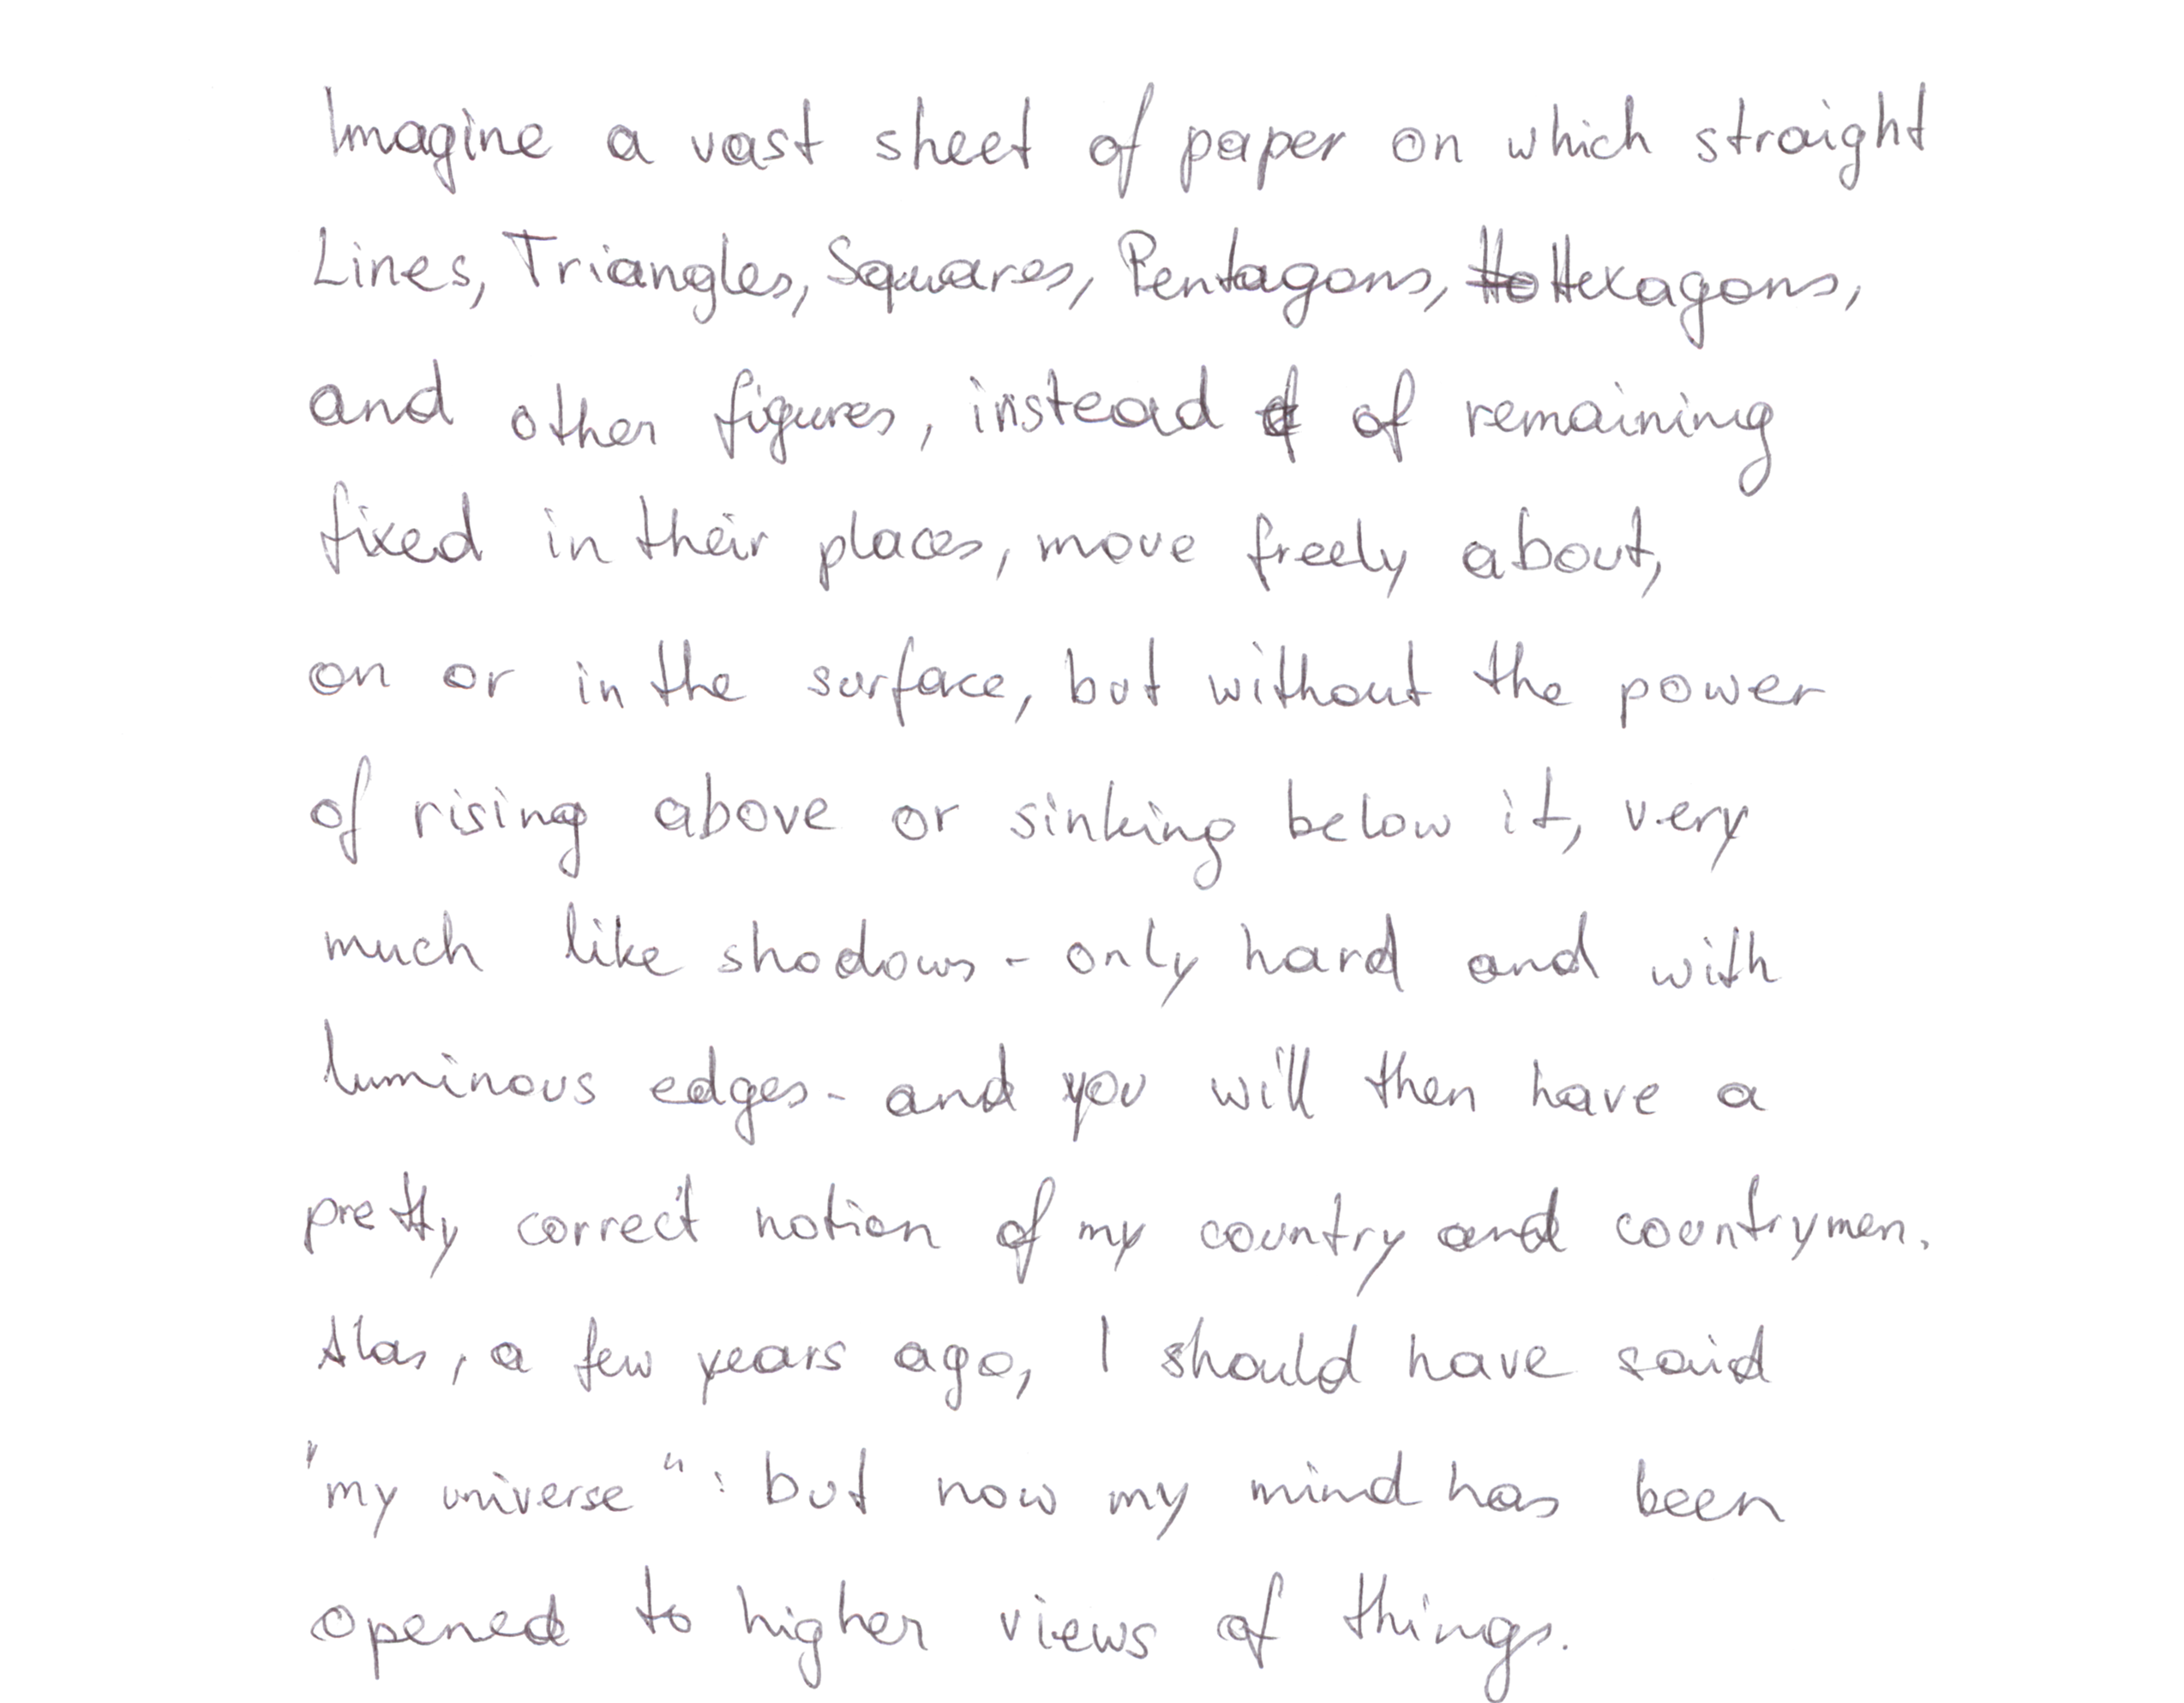 Imagine a vast sheet of paper on which straight
Lines, Triangles, Squares, Pentagons, Hexagons,
and other figures, instead of remaining
fixed in their places, move freely about,
on or in the surface, but without the power
of rising above or sinking below it, very
much like shadows - only hard and with
luminous edges - and you will then have a
pretty correct notion of my country and countrymen.
Alas, a few years ago, I should have said
"my universe": but now my mind has been
opened to higher views of things.